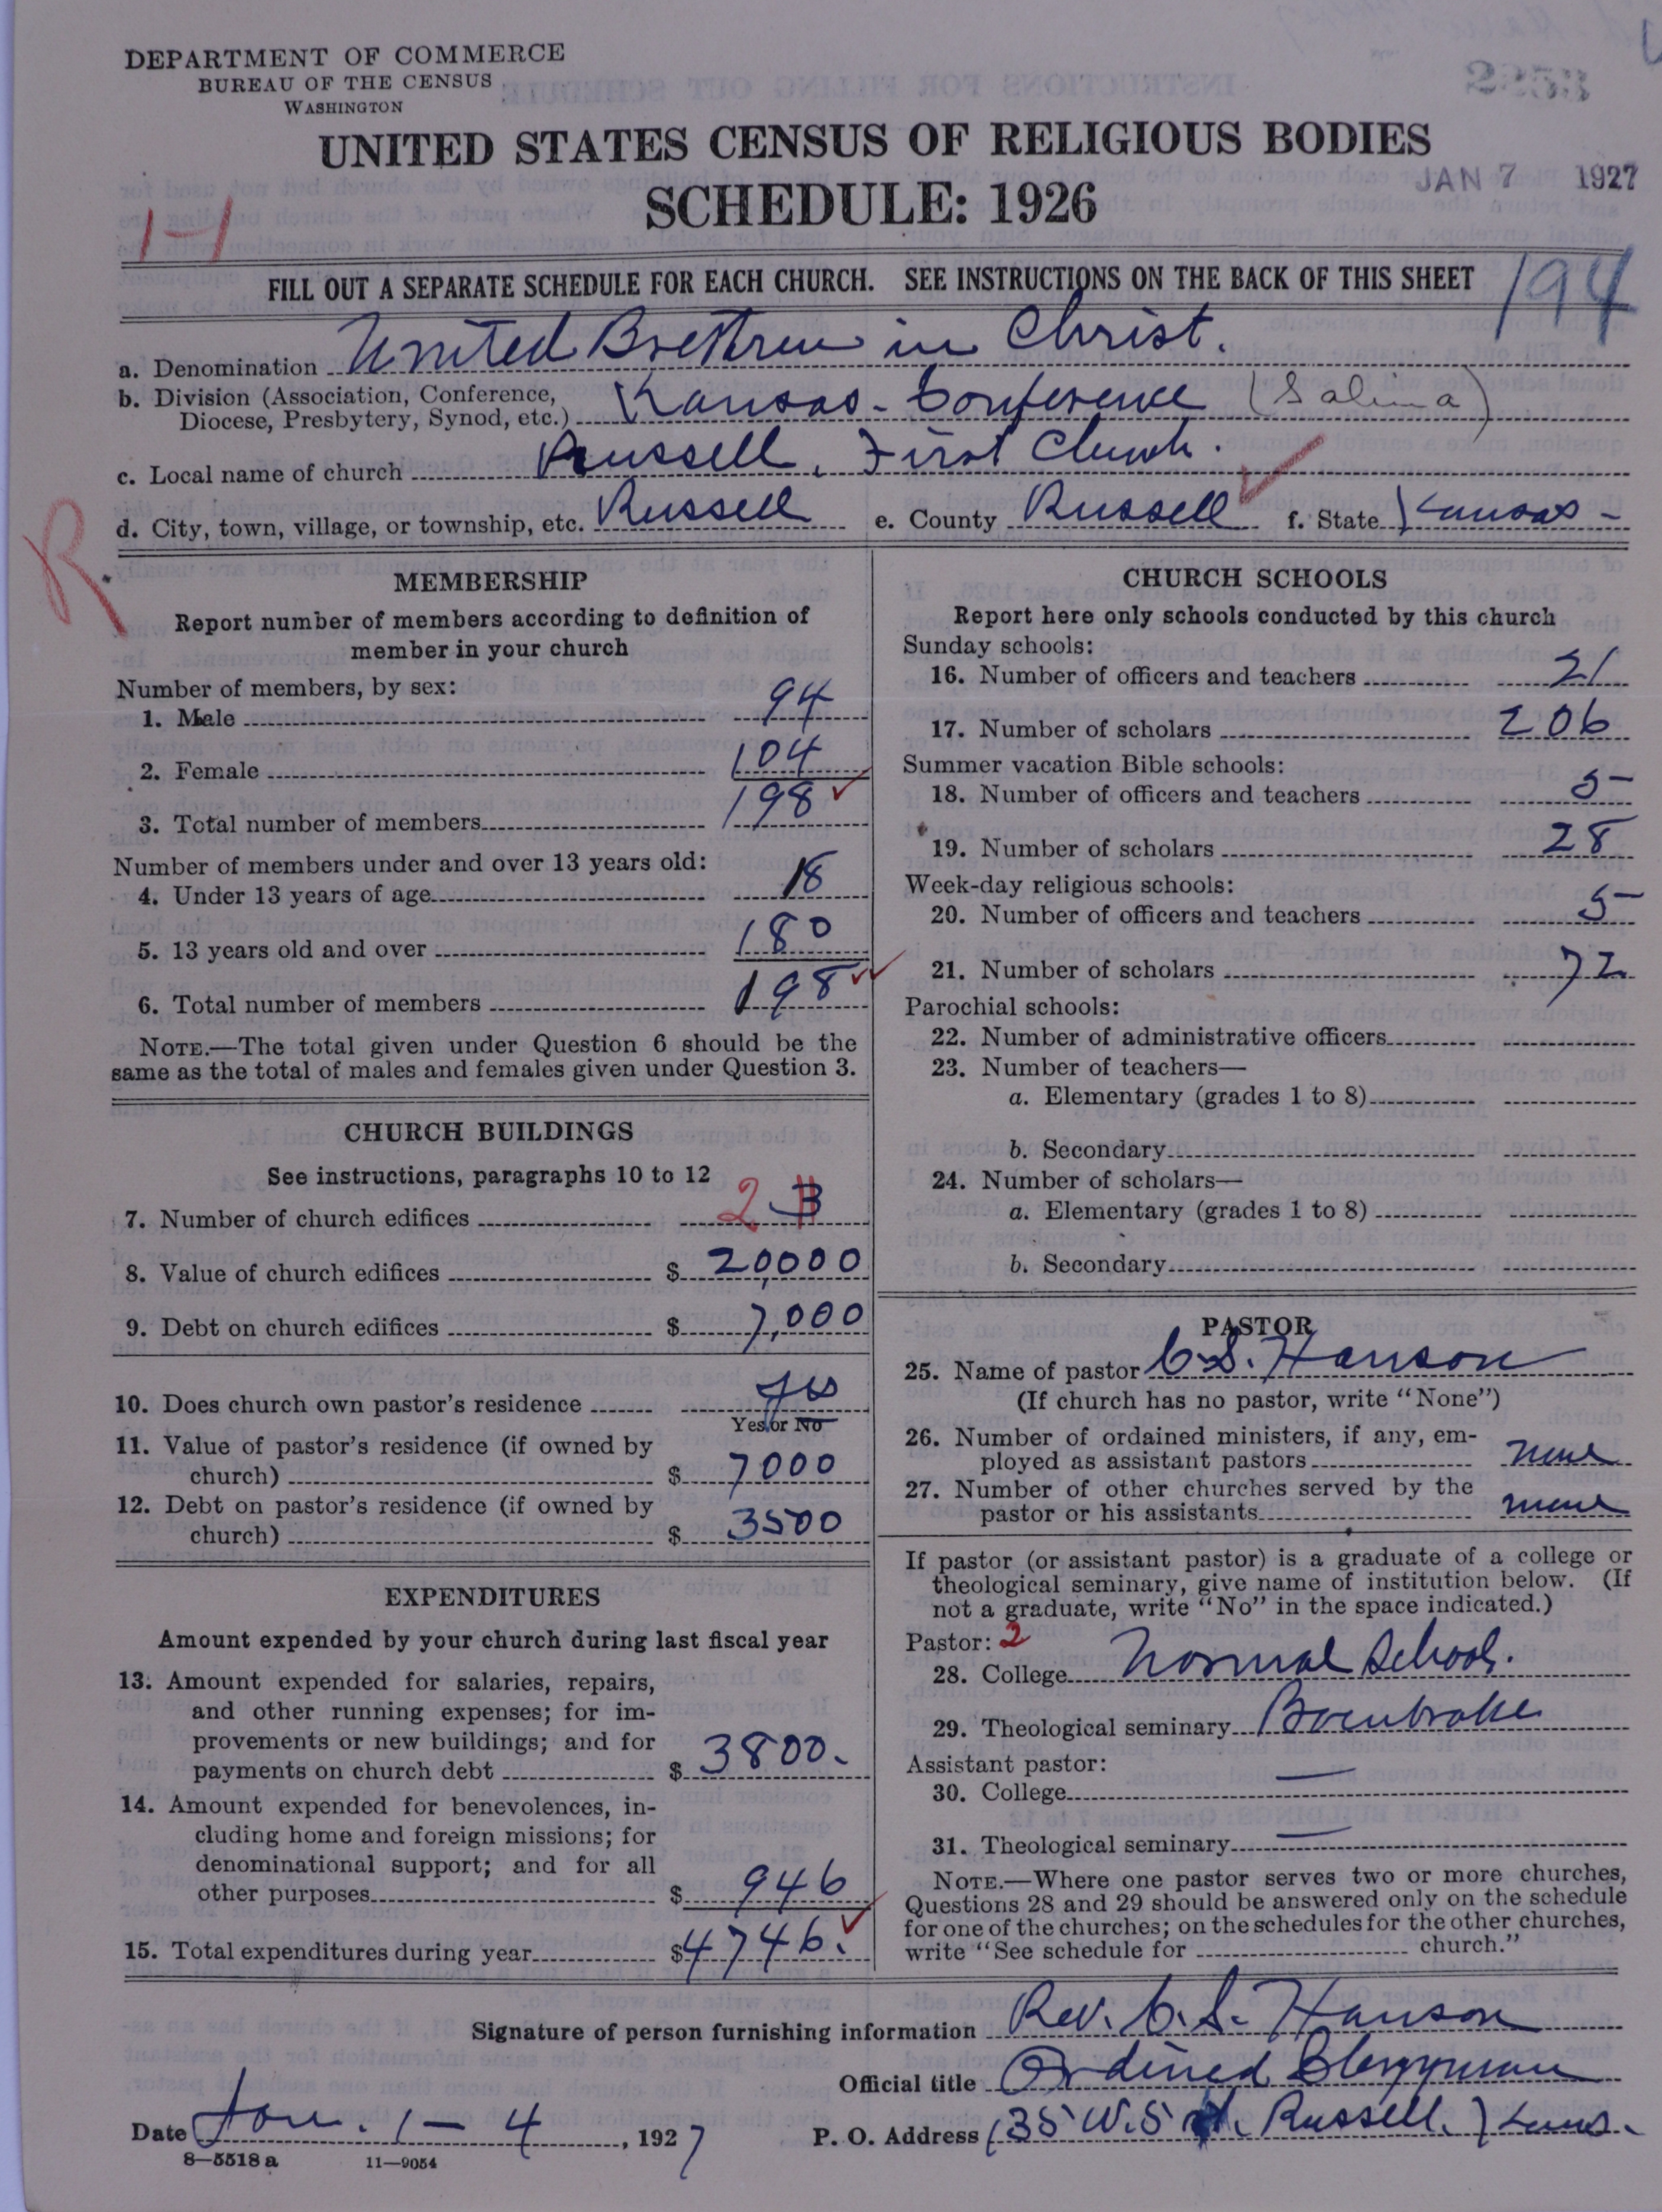 DEPARTMENT OF COMMERCE
BUREAU OF THE CENSUS
WASHINGTON
UNITED STATES CENSUS OF RELIGIOUS BODIES
SCHEDULE: 1926
JAN 7 1927
H
FILL OUT A SEPARATE SCHEDULE FOR EACH CHURCH. SEE INSTRUCTIONS ON THE BACK OF THIS SHEET
194
a. Denomination United Brethren in Christ.
b. Division (Association, Conference,
Diocese, Presbytery, Synod, etc.) Kansas - Conference (Salina)
c. Local name of church Russell, First Church.
d. City, town, village, or township, etc. Russell e. County Russell f. State Kansas -
R
MEMBERSHIP
Report number of members according to definition of
member in your church
Number of members, by sex:
1. Male 94
2. Female 104
3. Total number of members 198
Number of members under and over 13 years old:
4. Under 13 years of age 18
5. 13 years old and over 180
6. Total number of members 198
NOTE.—The total given under Question 6 should be the
same as the total of males and females given under Question 3.
CHURCH BUILDINGS
See instructions, paragraphs 10 to 12
7. Number of church edifices 2 3
8. Value of church edifices $ 20,000
9. Debt on church edifices $ 7,000
10. Does church own pastor's residence yes
Yes or No
11. Value of pastor's residence (if owned by
church) $ 7000
12. Debt on pastor's residence (if owned by
church) $ 3500
EXPENDITURES
Amount expended by your church during last fiscal year
13. Amount expended for salaries, repairs,
and other running expenses; for im-
provements or new buildings; and for
payments on church debt $ 3800.
14. Amount expended for benevolences, in-
cluding home and foreign missions; for
denominational support; and for all
other purposes $ 946
15. Total expenditures during year $ 4746.
CHURCH SCHOOLS
Report here only schools conducted by this church
Sunday schools:
16. Number of officers and teachers 21
17. Number of scholars 206
Summer vacation Bible schools:
18. Number of officers and teachers 5
19. Number of scholars 28
Week-day religious schools:
20. Number of officers and teachers 5
21. Number of scholars 72
Parochial schools:
22. Number of administrative officers
23. Number of teachers—
a. Elementary (grades 1 to 8)
b. Secondary
24. Number of scholars—
a. Elementary (grades 1 to 8)
b. Secondary
PASTOR
25. Name of pastor C. S. Hanson
(If church has no pastor, write "None")
26. Number of ordained ministers, if any, em-
ployed as assistant pastors none
27. Number of other churches served by the
pastor or his assistants none
If pastor (or assistant pastor) is a graduate of a college or
theological seminary, give name of institution below. (If
not a graduate, write "No" in the space indicated.)
Pastor: 2
28. College Normal School.
29. Theological seminary Bonebrake
Assistant pastor:
30. College —
31. Theological seminary —
NOTE.—Where one pastor serves two or more churches,
Questions 28 and 29 should be answered only on the schedule
for one of the churches; on the schedules for the other churches,
write "See schedule for church."
Signature of person furnishing information Rev. C. S. Hanson
Official title Ordined Clergyman
Date Jan. 1 - 4, 1927 P. O. Address 135 W. 5 st. Russell, Kans.
8—5518 a 11—9054